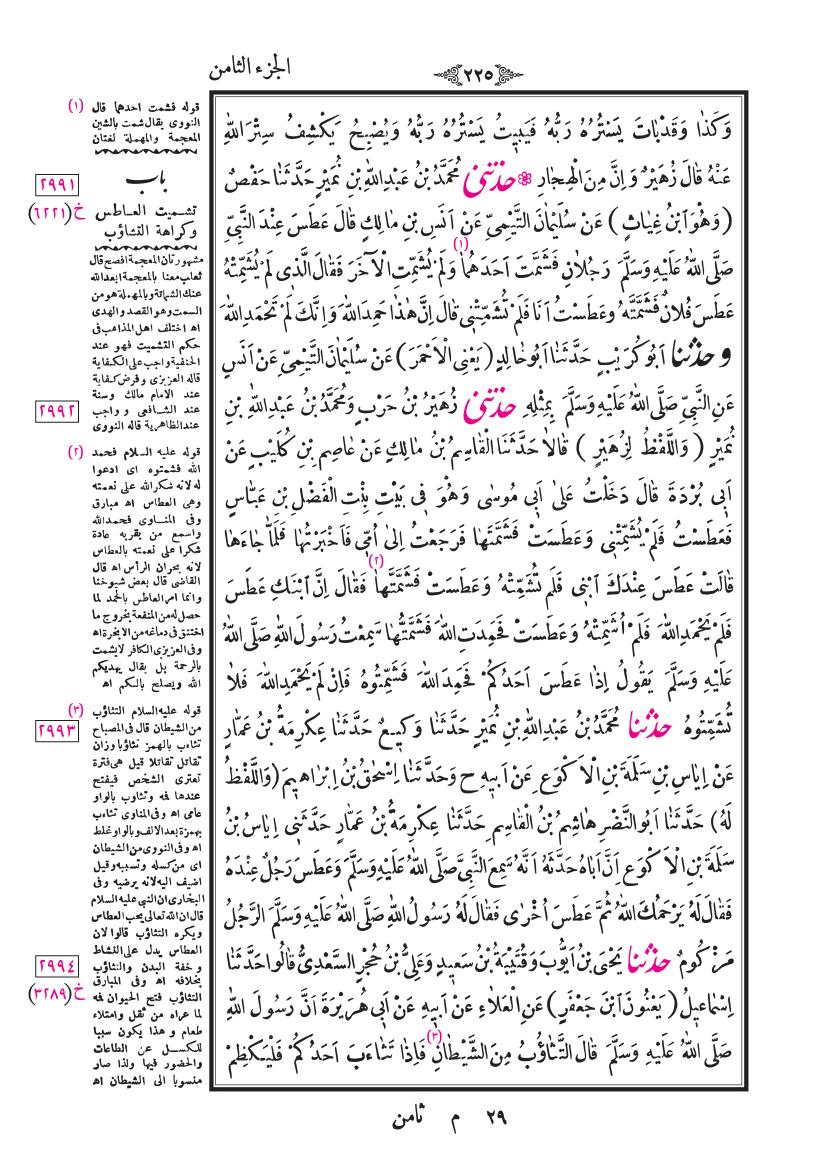 الجزء الثامن
٢٢٥
وَكَذَا وَقَدْ بَاتَ يَسْتُرُهُ رَبُّهُ فَيَبِيتُ يَسْتُرُهُ رَبُّهُ وَيُصْبِحُ يَكْشِفُ سِتْرَ اللهِ
عَنْهُ قَالَ زُهَيْرٌ وَاِنَّ مِنَ الْهِجَارِ ۞ حَدَّثَنِي مُحَمَّدُ بْنُ عَبْدِ اللهِ بْنِ نُمَيْرٍ حَدَّثَنَا حَفْصٌ
(وَهُوَ ابْنُ غِيَاثٍ) عَنْ سُلَيْمَانَ التَّيْمِيِّ عَنْ اَنَسِ بْنِ مَالِكٍ قَالَ عَطَسَ عِنْدَ النَّبِيِّ
صَلَّى اللهُ عَلَيْهِ وَسَلَّمَ رَجُلَانِ فَشَمَّتَ اَحَدَهُمَا (١) وَلَمْ يُشَمِّتِ الْآخَرَ فَقَالَ الَّذِى لَمْ يُشَمِّتْهُ
عَطَسَ فُلَانٌ فَشَمَّتَّهُ وَعَطَسْتُ اَنَا فَلَمْ تُشَمِّتْنِى قَالَ اِنَّ هٰذَا حَمِدَ اللهَ وَاِنَّكَ لَمْ تَحْمَدِ اللهَ
وحدثنا اَبُو كُرَيْبٍ حَدَّثَنَا اَبُو خَالِدٍ (يَعْنِى الْاَحْمَرَ) عَنْ سُلَيْمَانَ التَّيْمِيِّ عَنْ اَنَسٍ
عَنِ النَّبِيِّ صَلَّى اللهُ عَلَيْهِ وَسَلَّمَ بِمِثْلِهِ حَدَّثَنِي زُهَيْرُ بْنُ حَرْبٍ وَمُحَمَّدُ بْنُ عَبْدِ اللهِ بْنِ
نُمَيْرٍ (وَاللَّفْظُ لِزُهَيْرٍ) قَالَا حَدَّثَنَا الْقَاسِمُ بْنُ مَالِكٍ عَنْ عَاصِمِ بْنِ كُلَيْبٍ عَنْ
اَبِى بُرْدَةَ قَالَ دَخَلْتُ عَلَى اَبِى مُوسَى وَهُوَ فِى بَيْتِ بِنْتِ الْفَضْلِ بْنِ عَبَّاسٍ
فَعَطَسْتُ فَلَمْ يُشَمِّتْنِى وَعَطَسَتْ فَشَمَّتَهَا فَرَجَعْتُ اِلَى اُمِّى فَاَخْبَرْتُهَا فَلَمَّا جَاءَهَا
قَالَتْ عَطَسَ عِنْدَكَ ابْنِى فَلَمْ تُشَمِّتْهُ وَعَطَسَتْ فَشَمَّتَّهَا (٢) فَقَالَ اِنَّ ابْنَكِ عَطَسَ
فَلَمْ يَحْمَدِ اللهَ فَلَمْ اُشَمِّتْهُ وَعَطَسَتْ فَحَمِدَتِ اللهَ فَشَمَّتُّهَا سَمِعْتُ رَسُولَ اللهِ صَلَّى اللهُ
عَلَيْهِ وَسَلَّمَ يَقُولُ اِذَا عَطَسَ اَحَدُكُمْ فَحَمِدَ اللهَ فَشَمِّتُوهُ فَاِنْ لَمْ يَحْمَدِ اللهَ فَلَا
تُشَمِّتُوهُ حدثنا مُحَمَّدُ بْنُ عَبْدِ اللهِ بْنِ نُمَيْرٍ حَدَّثَنَا وَكِيعٌ حَدَّثَنَا عِكْرِمَةُ بْنُ عَمَّارٍ
عَنْ اِيَاسِ بْنِ سَلَمَةَ بْنِ الْاَكْوَعِ عَنْ اَبِيهِ ح وَحَدَّثَنَا اِسْحٰقُ بْنُ اِبْرَاهِيمَ (وَاللَّفْظُ
لَهُ) حَدَّثَنَا اَبُو النَّضْرِ هَاشِمُ بْنُ الْقَاسِمِ حَدَّثَنَا عِكْرِمَةُ بْنُ عَمَّارٍ حَدَّثَنِى اِيَاسُ بْنُ
سَلَمَةَ بْنِ الْاَكْوَعِ اَنَّ اَبَاهُ حَدَّثَهُ اَنَّهُ سَمِعَ النَّبِيَّ صَلَّى اللهُ عَلَيْهِ وَسَلَّمَ وَعَطَسَ رَجُلٌ عِنْدَهُ
فَقَالَ لَهُ يَرْحَمُكَ اللهُ ثُمَّ عَطَسَ اُخْرَى فَقَالَ لَهُ رَسُولُ اللهِ صَلَّى اللهُ عَلَيْهِ وَسَلَّمَ الرَّجُلُ
مَزْكُومٌ حدثنا يَحْيَى بْنُ اَيُّوبَ وَقُتَيْبَةُ بْنُ سَعِيدٍ وَعَلِيُّ بْنُ حُجْرٍ السَّعْدِيُّ قَالُوا حَدَّثَنَا
اِسْمَاعِيلُ (يَعْنُونَ ابْنَ جَعْفَرٍ) عَنِ الْعَلَاءِ عَنْ اَبِيهِ عَنْ اَبِى هُرَيْرَةَ اَنَّ رَسُولَ اللهِ
صَلَّى اللهُ عَلَيْهِ وَسَلَّمَ قَالَ التَّثَاؤُبُ مِنَ الشَّيْطَانِ (٣) فَاِذَا تَثَاءَبَ اَحَدُكُمْ فَلْيَكْظِمْ
(١) قوله فشمت احدهما قال
النووى يقال شمت بالشين
المعجمة والمهملة لغتان
باب
٢٩٩١
تشميت العاطس
خ (٦٢٢١)
وكراهة التثاؤب
مشهورتان المعجمة افصح قال
ثعلب معنا بالمعجمة ابعدالله
عنك الشماتة وبالمهملة هو من
السمت وهو القصد والهدى
اه اختلف اهل المذاهب فى
حكم التشميت فهو عند
الحنفية واجب على الكفاية
قاله العزيزى وفرض كفاية
عند الامام مالك وسنة
عند الشافعى و واجب
عند الظاهرية قاله النووى
٢٩٩٢
(٢) قوله عليه السلام فحمد
الله فشمتوه اى ادعوا
له لانه شكر الله على نعمته
وهى العطاس اه مبارق
وفى المناوى فحمدالله
واسمع من بقربه عادة
شكرا على نعمته بالعطاس
لانه بحران الرأس اه قال
القاضى قال بعض شيوخنا
وانما امر العاطس بالحمد لما
حصل له من المنفعة بخروج ما
اختنق فى دماغه من الابخرة اه
وفى العزيزى الكافر لايشمت
بالرحمة بل يقال يهديكم
الله ويصلح بالكم اه
(٣) قوله عليه السلام التثاؤب
٢٩٩٣
من الشيطان قال فى المصباح
تثاءب بالهمز تثاؤبا وزان
تقاتل تقاتلا قيل هى فترة
تعترى الشخص فيفتح
عندها فه وتثاوب بالواو
عامى اه وفى المناوى تثاءب
بهمزة بعد الالف وبالواو غلط
اه وفى النووى من الشيطان
اى من كسله وتسببه وقيل
اضيف اليه لانه يرضيه وفى
البخارى ان النبى عليه السلام
قال ان الله تعالى يحب العطاس
ويكره التثاؤب قالوا لان
العطاس يدل على النشاط
٢٩٩٤
وخفة البدن والتثاؤب
بخلافه اه وفى المبارق
خ (٣٢٨٩)
التثاؤب فتح الحيوان فه
لما عراه من ثقل وامتلاء
طعام و هذا يكون سببا
للكسل عن الطاعات
والحضور فيها ولذا صار
منسوبا الى الشيطان اه
٢٩ م ثامن